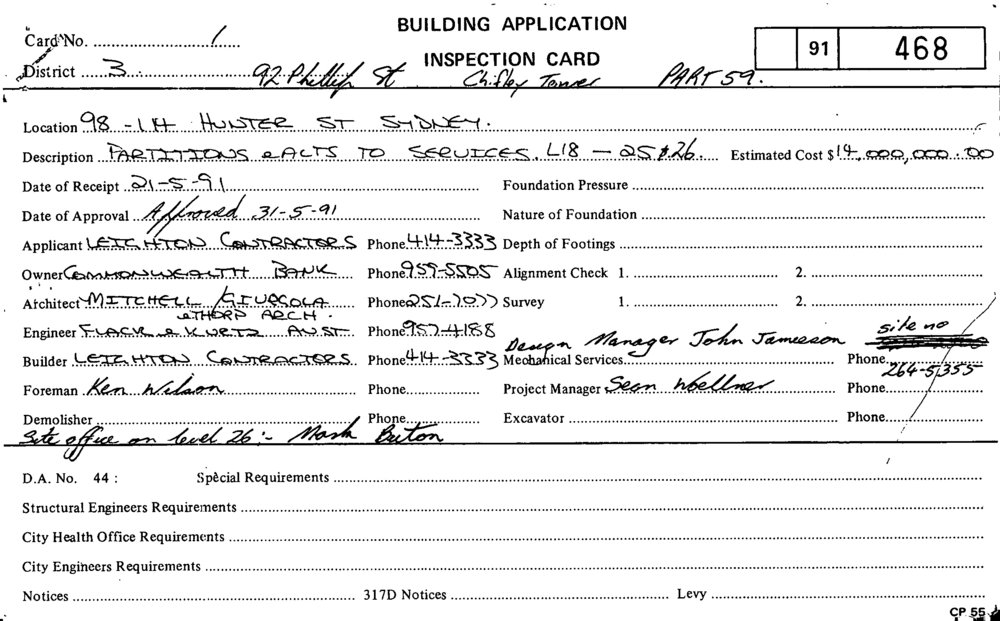 BUILDING APPLICATION
INSPECTION CARD
91 468
Card No. 1
District 3 92 Phillip St Chifley Tower PART 59.
Location 98 - 114 HUNTER ST SYDNEY.
Description PARTITIONS & ALTS TO SERVICES. L18 - 25 & 26. Estimated Cost $ 14,000,000.00
Date of Receipt 21-5-91 Foundation Pressure
Date of Approval Approved 31-5-91 Nature of Foundation
Applicant LEIGHTON CONTRACTORS Phone 414-3333 Depth of Footings
Owner COMMONWEALTH BANK Phone 959-5505 Alignment Check 1. 2.
Architect MITCHELL/GIURGOLA Phone 251-7077 Survey 1. 2.
& THORP ARCH.
Engineer FLACK & KURTZ AUST. Phone 957-4188
Design Manager John Jamieson site no
Builder LEIGHTON CONTRACTORS Phone 414-3333 Mechanical Services Phone
264-5355
Foreman Ken Wilson Phone Project Manager Sean Woellner Phone
Demolisher Phone Excavator Phone
Site office on level 26:- Mark
D.A. No. 44 : Special Requirements
Structural Engineers Requirements
City Health Office Requirements
City Engineers Requirements
Notices 317D Notices Levy
CP 55